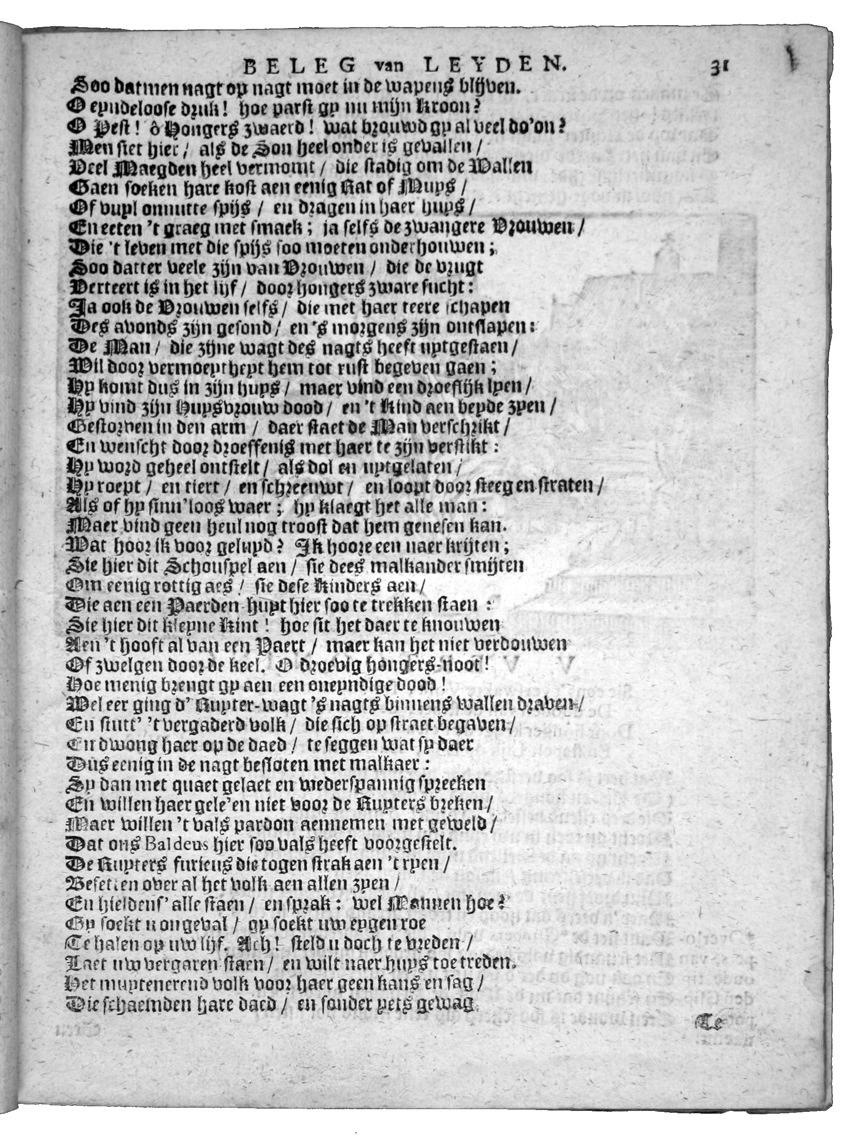 BELEG van LEYDEN. 31
Soo datmen nagt op nagt moet in de wapens blijven.
O eyndeloose druk! hoe parst gy nu mijn kroon?
O Pest! ô Hongers zwaerd! wat brouwd gy al veel do'on?
Men siet hier/ als de Son heel onder is gevallen/
Veel Maegden heel vermomt/ die stadig om de Wallen
Gaen soeken hare kost aen eenig Kat of Muys/
Of vuyl onnutte spijs/ en dragen in haer huys/
En eeten 't graeg met smaek; ja selfs de zwangere Vrouwen/
Die 't leven met die spijs soo moeten onderhouwen;
Soo datter veele zijn van Vrouwen/ die de vrugt
Verteert is in het lijf/ door hongers zware sucht:
Ja ook de Vrouwen selfs/ die met haer teere schapen
Des avonds zijn gesond/ en 's morgens zijn ontslapen:
De Man/ die zijne wagt des nagts heeft uytgestaen/
Wil door vermoeytheyt hem tot rust begeven gaen;
Hy komt dus in zijn huys/ maer vind een droeflijk lyen/
Hy vind zijn Huysvrouw dood/ en 't kind aen beyde zyen/
Gestorven in den arm/ daer staet de Man verschrikt/
En wenscht door droeffenis met haer te zijn verstikt:
Hy word geheel ontstelt/ als dol en uytgelaten/
Hy roept/ en tiert/ en schreeuwt/ en loopt door steeg en straten/
Als of hy sinn'loos waer; hy klaegt het alle man:
Maer vind geen heul nog troost dat hem genesen kan.
Wat hoor ik voor geluyd? Ik hoore een naer krijten;
Sie hier dit Schouspel aen/ sie dees malkander smijten
Om eenig rottig aes/ sie dese kinders aen/
Die aen een Paerden-huyt hier soo te trekken staen:
Sie hier dit kleyne Kint! hoe sit het daer te knouwen
Aen 't hooft al van een Paert/ maer kan het niet verdouwen
Of zwelgen door de keel. O droevig hongers-noot!
Hoe menig brengt gy aen een oneyndige dood!
Wel eer ging d' Ruyter-wagt 's nagts binnens wallen draven/
En stutt' 't vergaderd volk/ die sich op straet begaven/
En dwong haer op de daed/ te seggen wat sy daer
Dus eenig in de nagt besloten met malkaer:
Sy dan met quaet gelaet en wederspannig spreeken
En willen haer gele'en niet voor de Ruyters breken/
Maer willen 't vals pardon aennemen met geweld/
Dat ons Baldeus hier soo vals heeft voorgestelt.
De Ruyters furieus die togen strak aen 't ryen/
Besetten over al het volk aen allen zyen/
En hieldens' alle staen/ en sprak: wel Mannen hoe?
Gy soekt u ongeval/ gy soekt uw eygen roe
Te halen op uw lijf. Ach! steld u doch te vreden/
Laet uw vergaren staen/ en wilt naer huys toe treden.
Het muytenerend volk voor haer geen kans en sag/
Die schaemden hare daed/ en sonder yets gewag
Te